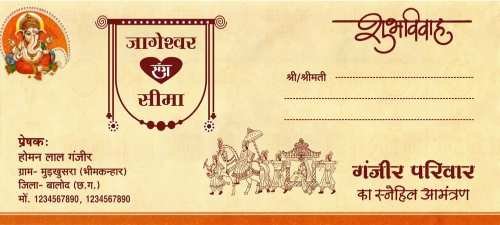 शुभविवाह
जागेश्वर
संग
सीमा
श्री/श्रीमती
प्रेषकः
होमन लाल गंजीर
ग्राम- मुड़खुसरा (भीमकन्हार)
जिला- बालोद (छ.ग.)
मों. 1234567890, 1234567890
गंजीर परिवार
का स्नेहिल आमंत्रण